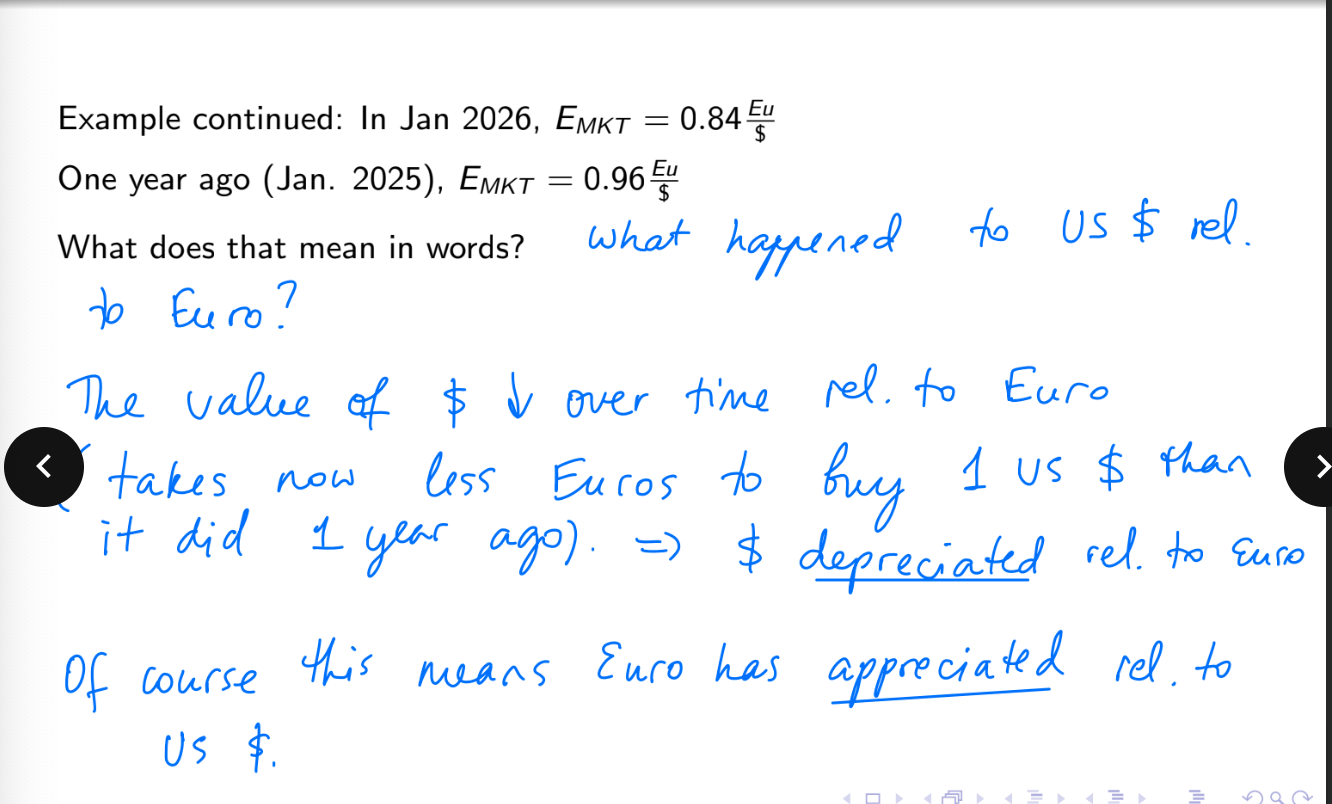 Example continued: In Jan 2026, E_MKT = 0.84 Eu/$
One year ago (Jan. 2025), E_MKT = 0.96 Eu/$
What does that mean in words? What happened to US $ rel.
to Euro?
The value of $ ↓ over time rel. to Euro
(takes now less Euros to buy 1 US $ than
it did 1 year ago). => $ depreciated rel. to Euro
Of course this means Euro has appreciated rel. to
US $.